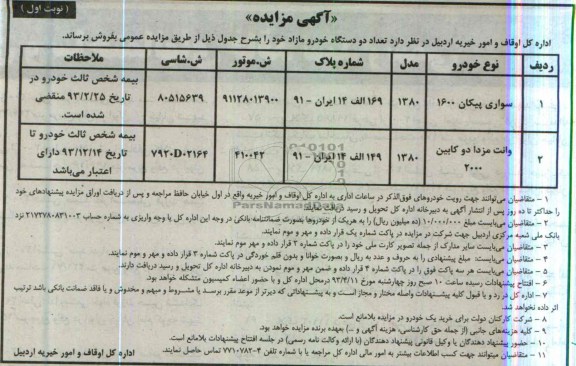 ( نوبت اول )
«آگهی مزایده»
اداره کل اوقاف و امور خیریه اردبیل در نظر دارد تعداد دو دستگاه خودرو مازاد خود را بشرح جدول ذیل از طریق مزایده عمومی بفروش برساند.
ردیف نوع خودرو مدل شماره پلاک ش.موتور ش.شاسی ملاحظات
۱ سواری پیکان ۱۶۰۰ ۱۳۸۰ ۱۶۹ الف ۱۴ ایران - ۹۱ ۹۱۱۲۸۰۱۳۹۰۰ ۸۰۵۱۵۶۳۹ بیمه شخص ثالث خودرو در تاریخ ۹۳/۲/۲۵ منقضی شده است.
۲ وانت مزدا دو کابین ۲۰۰۰ ۱۳۸۰ ۱۴۹ الف ۱۴ ایران - ۹۱ ۴۱۰۰۴۲ ۷۹۲۰D۰۲۱۶۴ بیمه شخص ثالث خودرو تا تاریخ ۹۳/۱۲/۱۴ دارای اعتبار می‌باشد
۱ - متقاضیان می‌توانند جهت رویت خودروهای فوق‌الذکر در ساعات اداری به اداره کل اوقاف و امور خیریه واقع در اول خیابان حافظ مراجعه و پس از دریافت اوراق مزایده پیشنهادهای خود
را حداکثر تا ده روز پس از انتشار آگهی به دبیرخانه اداره کل تحویل و رسید دریافت نمایند.
۲ - متقاضیان می‌بایست مبلغ ۱۰/۰۰۰/۰۰۰ (ده میلیون ریال) را به هریک از خودروها بصورت ضمانتنامه بانکی در وجه این اداره کل یا وجه واریزی به شماره حساب ۲۱۷۲۷۸۰۸۳۱۰۰۳ نزد
بانک ملی شعبه مرکزی اردبیل جهت شرکت در مزایده در پاکت شماره یک قرار داده و مهر و موم نمایند.
۳ - متقاضیان می‌بایست سایر مدارک از جمله تصویر کارت ملی خود را در پاکت شماره ۲ قرار داده و مهر موم نمایند.
۴ - متقاضیان می‌بایست مبلغ پیشنهادی را به حروف و عدد به ریال و بصورت خوانا و بدون قلم خوردگی در پاکت شماره ۳ قرار داده و مهر و موم نمایند.
۵ - متقاضیان می‌بایست هر سه پاکت فوق را در پاکت شماره ۴ قرار داده و ضمن مهر و موم نمودن به دبیرخانه اداره کل تحویل و رسید دریافت دارند.
۶ - افتتاح پیشنهادات رسیده ساعت ۱۰ صبح روز چهارشنبه مورخ ۹۳/۴/۱۱ درمحل اداره کل و با حضور اعضاء کمیسیون متشکله خواهد بود.
۷ - اداره کل در رد و یا قبول کلیه پیشنهادات واصله مختار و مجاز است و به پیشنهاداتی که دیرتر از موعد مقرر برسد یا مشروط و مبهم و مخدوش و یا فاقد ضمانت بانکی باشد ترتیب
اثر داده نخواهد شد.
۸ - شرکت کارکنان دولت برای خرید یک خودرو در مزایده بلامانع است.
۹ - کلیه هزینه‌های جانبی (از جمله حق کارشناسی، هزینه آگهی و ...) بعهده برنده مزایده خواهد بود.
۱۰ - حضور پیشنهاد دهندگان یا وکیل قانونی پیشنهاد دهندگان (با ارائه وکالت نامه رسمی) در جلسه افتتاح پیشنهادات بلامانع است.
۱۱ - متقاضیان میتوانند جهت کسب اطلاعات بیشتر به امور مالی اداره کل مراجعه یا با شماره تلفن ۴-۷۷۱۰۷۸۲ تماس حاصل نمایند.
اداره کل اوقاف و امور خیریه اردبیل